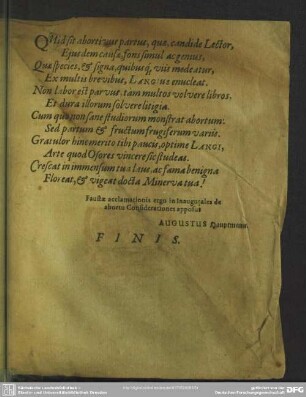 Quid sit abortivus partus, quæ, candide Lector,
Ejusdem causæ, fons simul ac genius,
Quæ species, & signa, quibusq́; viis medeatur,
Ex multis brevibus, LANGUS enucleat.
Non labor est parvus: tam multos volvere libros,
Et dura illorum solvere litigia.
Cum quo non sane studiorum monstrat abortum:
Sed partum & fructum feugiferum variis.
Gratulor hinc merito tibi paucis, optime LANGI,
Arte quod Osores vincere sic studeas.
Crescat in immensum tua laus, ac fama benigna
Floreat, & vigeat docta Minerva tua!
Faustæ acclamationis ergo in Inaugurales de
abortu Considerationes apposuit
AUGUSTUS
FINIS.